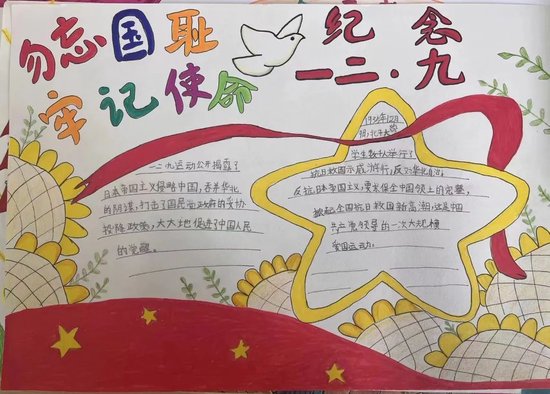 勿忘国耻
牢记使命
纪念
一二·九
一二九运动公开揭露了
日本帝国主义侵略中国，吞并华北
的阴谋，打击了国民党政府的妥协
投降政策，大大地促进了中国人民
的觉醒。
1935年12月
9日，北平大
学生数千人举行了
抗日救国示威游行，反
反抗日本帝国主义，要求保全中国领土的完整，
掀起全国抗日救国新高潮。这是中国
共产党领导的一次大规模
爱国运动。